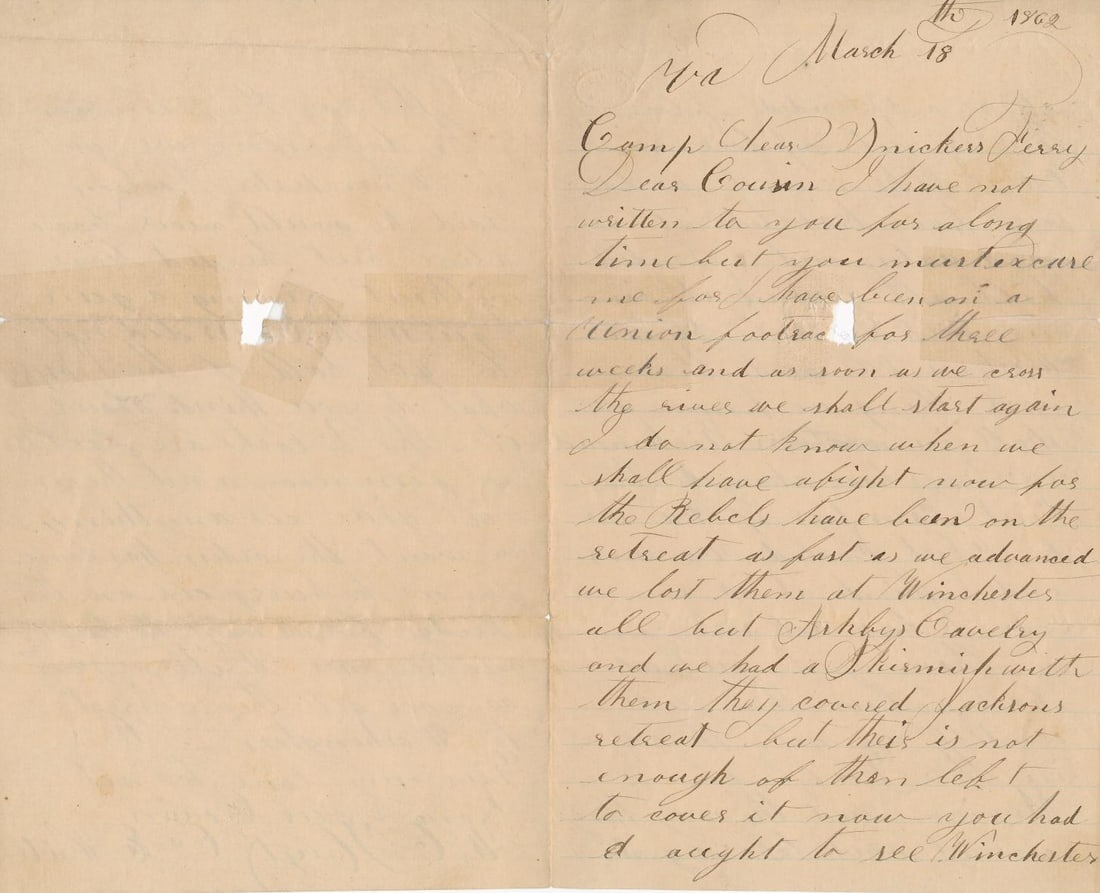 th 1862
Va March 18
Camp Near Snickers Ferry
Dear Cousin I have not
written to you for along
time but you must excuse
me for I have been on a
Union footrac for three
weeks and as soon as we cross
the river we shall start again
I do not know when we
shall have afight now for
the Rebels have been on the
retreat as fast as we advanced
we lost them at Winchester
all but Ashbys Cavelry
and we had a Skirmish with
them they covered Jacksons
retreat but their is not
enough of them left
to cover it now you had
d aught to see Winchester